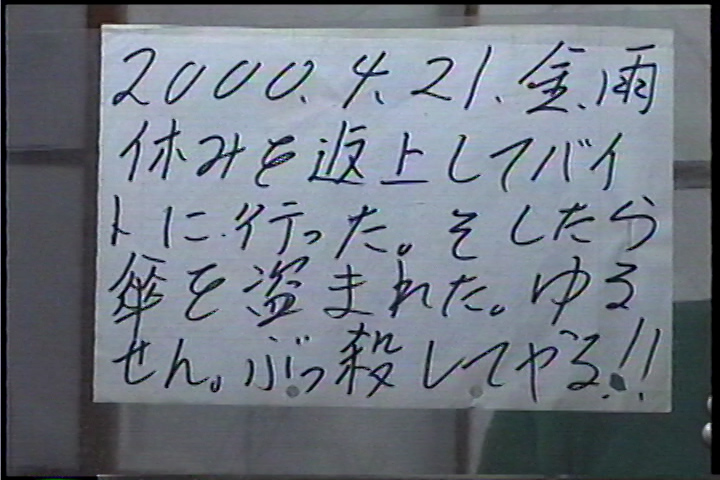 2000.4.21.金.雨
休みを返上してバイ
トに行った。そしたら
傘を盗まれた。ゆる
せん。ぶっ殺してやる!!